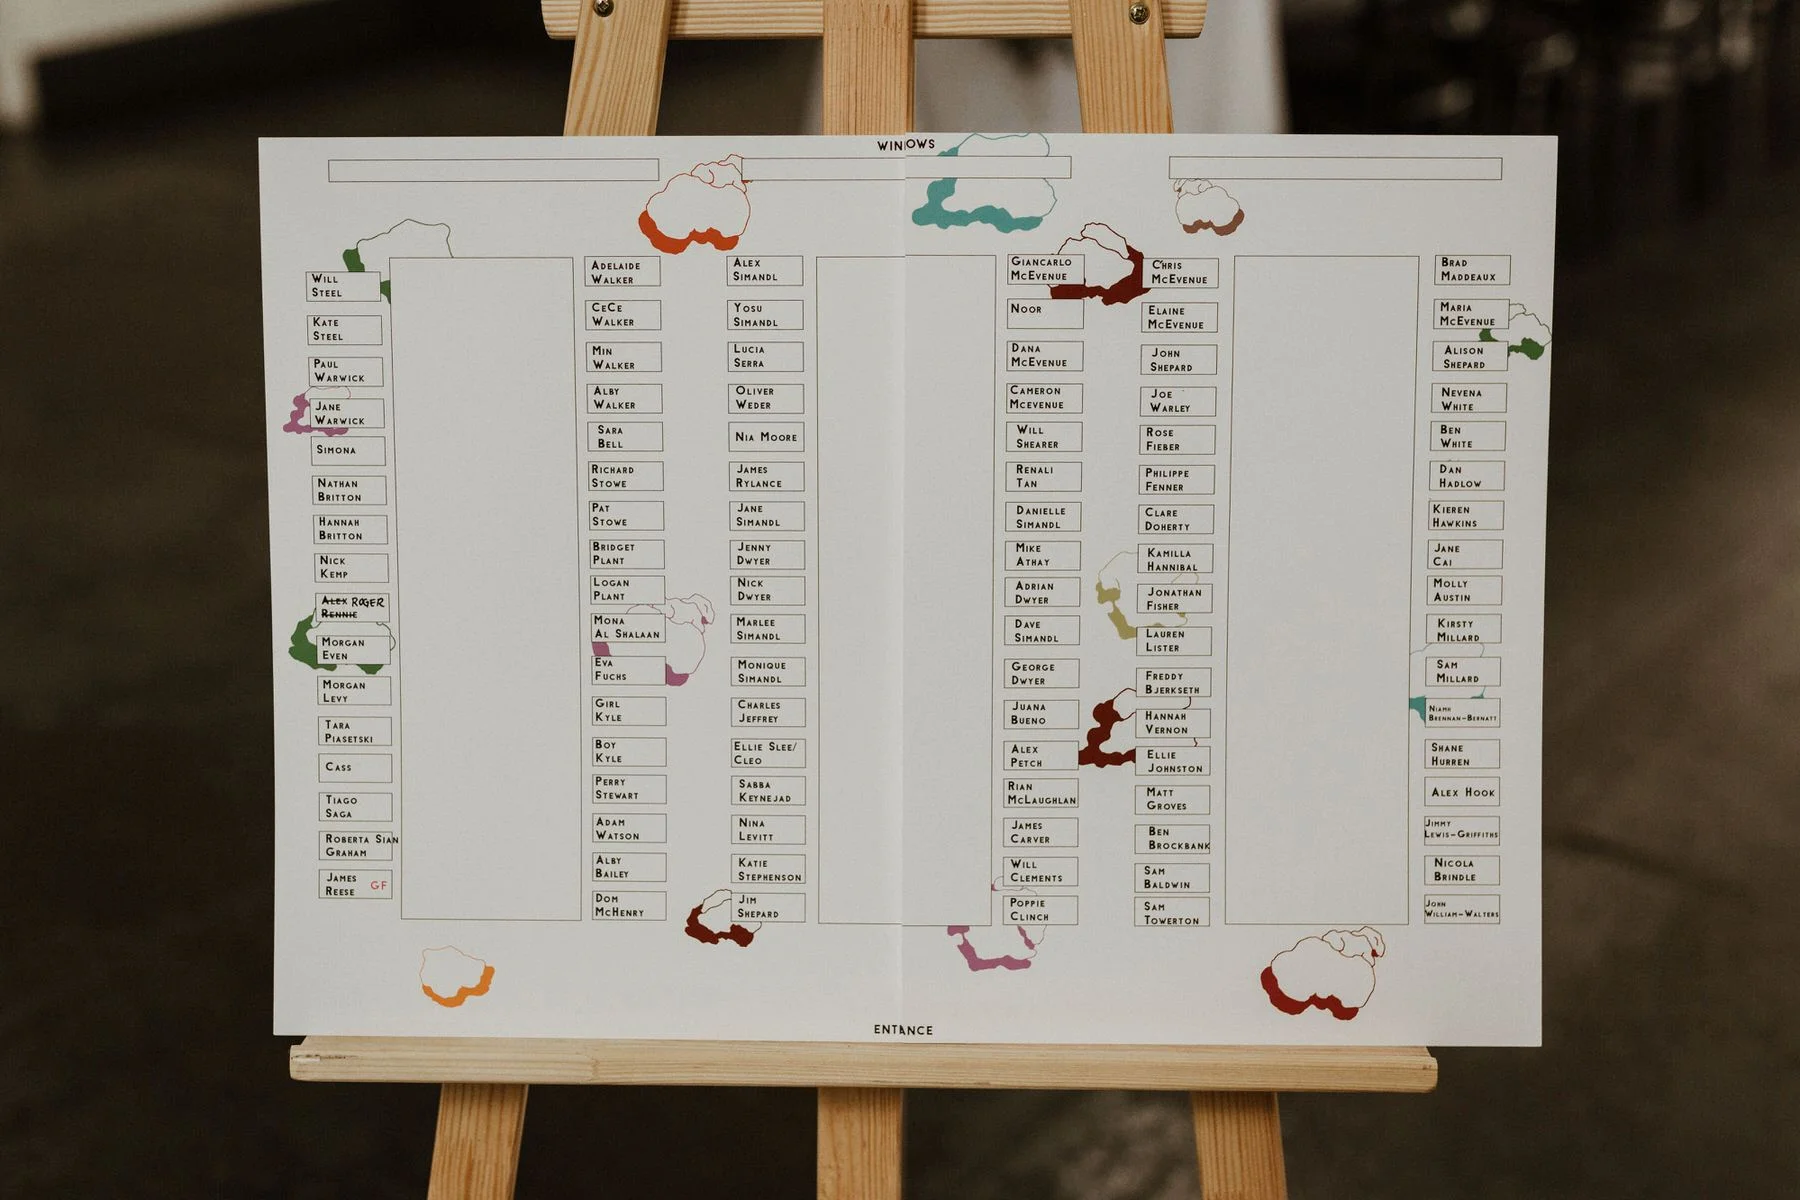 WINOWS
WILL
STEEL
KATE
STEEL
PAUL
WARWICK
JANE
WARWICK
SIMONA
NATHAN
BRITTON
HANNAH
BRITTON
NICK
KEMP
ALEX ROGER
RENNIE
MORGAN
EVEN
MORGAN
LEVY
TARA
PIASETSKI
CASS
TIAGO
SAGA
ROBERTA SIAN
GRAHAM
JAMES
REESE GF
ADELAIDE
WALKER
CECE
WALKER
MIN
WALKER
ALBY
WALKER
SARA
BELL
RICHARD
STOWE
PAT
STOWE
BRIDGET
PLANT
LOGAN
PLANT
MONA
AL SHALAAN
EVA
FUCHS
GIRL
KYLE
BOY
KYLE
PERRY
STEWART
ADAM
WATSON
ALBY
BAILEY
DOM
McHENRY
ALEX
SIMANDL
YOSU
SIMANDL
LUCIA
SERRA
OLIVER
WEDER
NIA MOORE
JAMES
RYLANCE
JANE
SIMANDL
JENNY
DWYER
NICK
DWYER
MARLEE
SIMANDL
MONIQUE
SIMANDL
CHARLES
JEFFREY
ELLIE SLEE/
CLEO
SABBA
KEYNEJAD
NINA
LEVITT
KATIE
STEPHENSON
JIM
SHEPARD
GIANCARLO
McEVENUE
NOOR
DANA
McEVENUE
CAMERON
MCEVENUE
WILL
SHEARER
RENALI
TAN
DANIELLE
SIMANDL
MIKE
ATHAY
ADRIAN
DWYER
DAVE
SIMANDL
GEORGE
DWYER
JUANA
BUENO
ALEX
PETCH
RIAN
McLAUGHLAN
JAMES
CARVER
WILL
CLEMENTS
POPPIE
CLINCH
CHRIS
McEVENUE
ELAINE
McEVENUE
JOHN
SHEPARD
JOE
WARLEY
ROSE
FIEBER
PHILIPPE
FENNER
CLARE
DOHERTY
KAMILLA
HANNIBAL
JONATHAN
FISHER
LAUREN
LISTER
FREDDY
BJERKSETH
HANNAH
VERNON
ELLIE
JOHNSTON
MATT
GROVES
BEN
BROCKBANK
SAM
BALDWIN
SAM
TOWERTON
BRAD
MADDEAUX
MARIA
McEVENUE
ALISON
SHEPARD
NEVENA
WHITE
BEN
WHITE
DAN
HADLOW
KIEREN
HAWKINS
JANE
CAI
MOLLY
AUSTIN
KIRSTY
MILLARD
SAM
MILLARD
NIAMH
BRENNAN-BERNATT
SHANE
HURREN
ALEX HOOK
JIMMY
LEWIS-GRIFFITHS
NICOLA
BRINDLE
JOHN
WILLIAM-WALTERS
ENTANCE